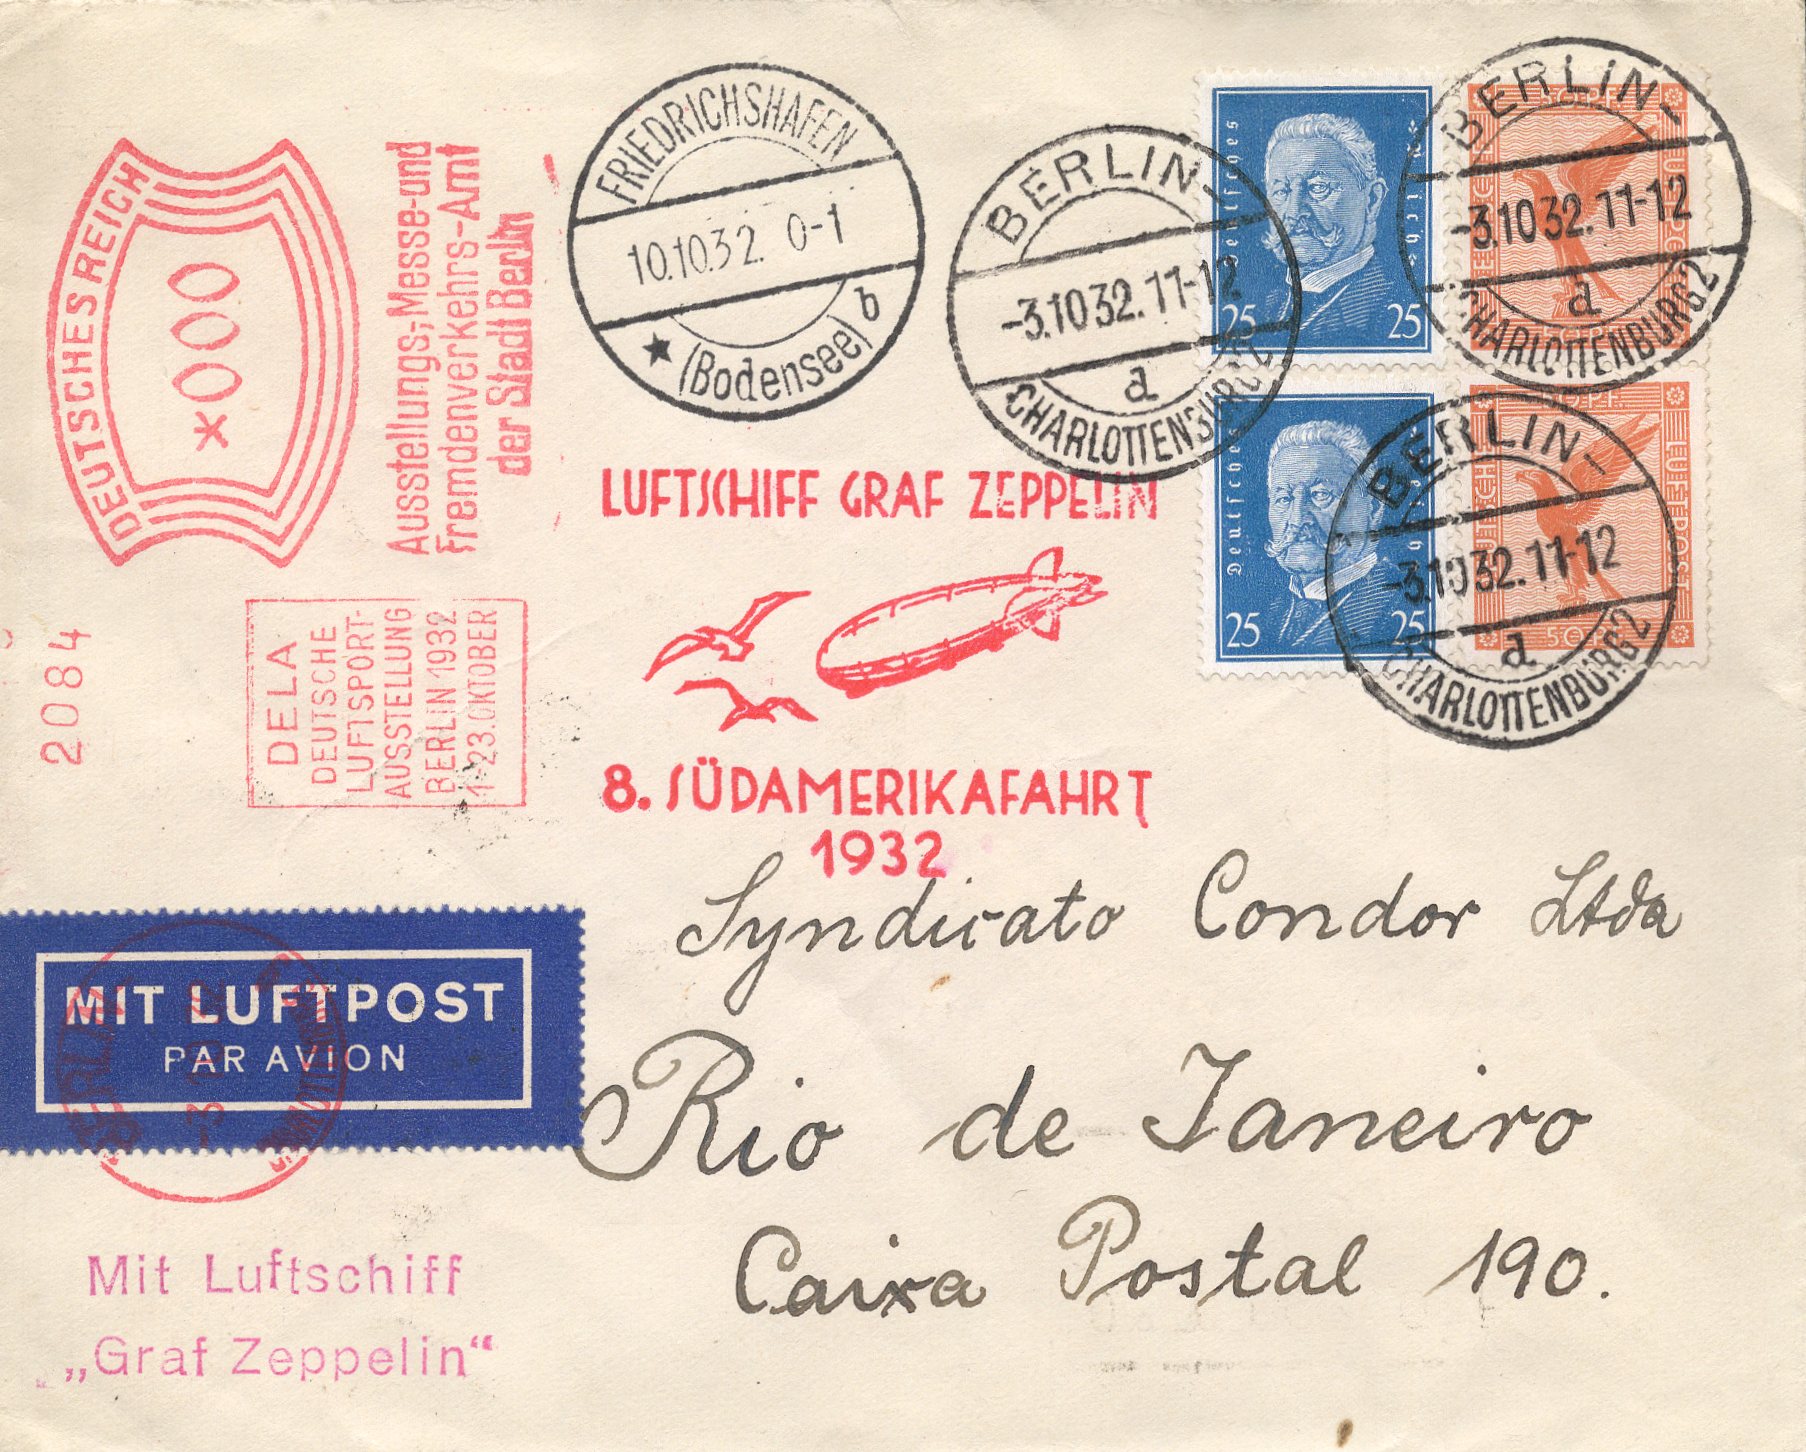 DEUTSCHES REICH
*000
Ausstellungs-, Messe-und
Fremdenverkehrs-Amt
der Stadt Berlin
2084
DELA
DEUTSCHE
LUFTSPORT-
AUSSTELLUNG
BERLIN 1932
1-23.OKTOBER
FRIEDRICHSHAFEN
10.10.32. 0-1
(Bodensee) b
BERLIN-
-3.10.32.11-12
d
CHARLOTTENBURG 2
Deutsches Reich
25 25
BERLIN-
-3.10.32.11-12
d
CHARLOTTENBURG 2
Deutsches Reich
25 25
DEUTSCHE LUFTPOST
50 PF
BERLIN-
-3.10.32.11-12
d
CHARLOTTENBURG 2
LUFTSCHIFF GRAF ZEPPELIN
8. SÜDAMERIKAFAHRT
1932
Syndicato Condor Ltda
Rio de Janeiro
Caixa Postal 190.
MIT LUFTPOST
PAR AVION
BERLIN
-3.10.32
Mit Luftschiff
„Graf Zeppelin“